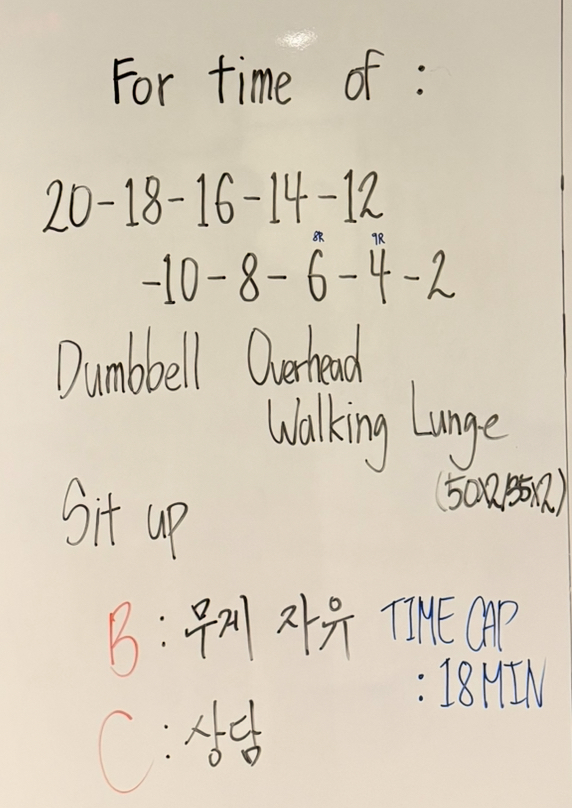 For time of :
20-18-16-14-12
8R 9R
-10-8-6-4-2
Dumbbell Overhead
Walking Lunge
(50x2/35x2)
Sit up
B : 무게 자유 TIME CAP
: 18 MIN
C : 상담